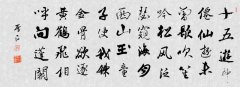 十五遊神
僊仙遊未
曾歇吹笙
吟松風泛
瑟窺海月
西山玉童
金骨欲逐
黄鶴飛相
呼向蓬闕